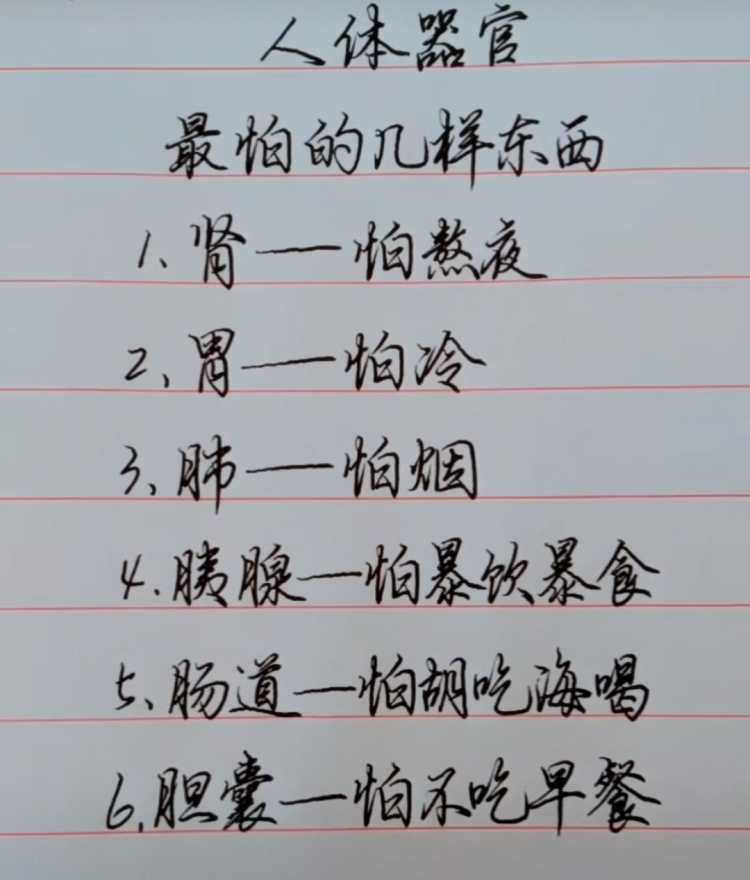 人体器官
最怕的几样东西
1、肾——怕熬夜
2、胃——怕冷
3、肺——怕烟
4.胰腺—怕暴饮暴食
5、肠道—怕胡吃海喝
6.胆囊—怕不吃早餐